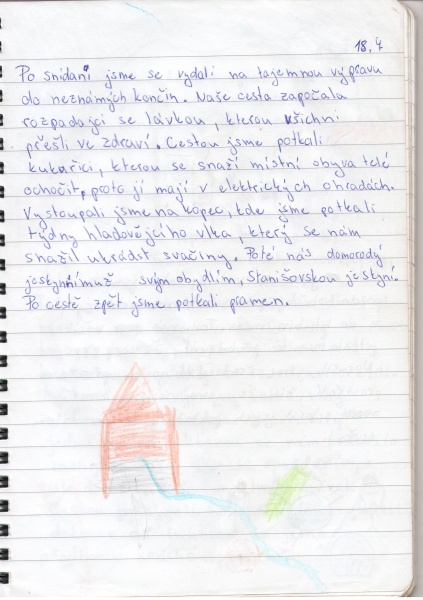 18.4
Po snídani jsme se vydali na tajemnou výpravu
do neznámých končin. Naše cesta započala
rozpadající se lávkou, kterou všichni
přešli ve zdraví. Cestou jsme potkali
kukařici, kterou se snaží místní obyvatelé
ochočit, proto jí mají v elektrických ohradách.
Vystoupali jsme na kopec, kde jsme potkali
týdny hladovějícího vlka, který se nám
snažil ukrádst svačiny. Poté nás domorodý
jeskynnímuž svým obydlím, Stanišovskou jeskyní.
Po cestě zpět jsme potkali pramen.